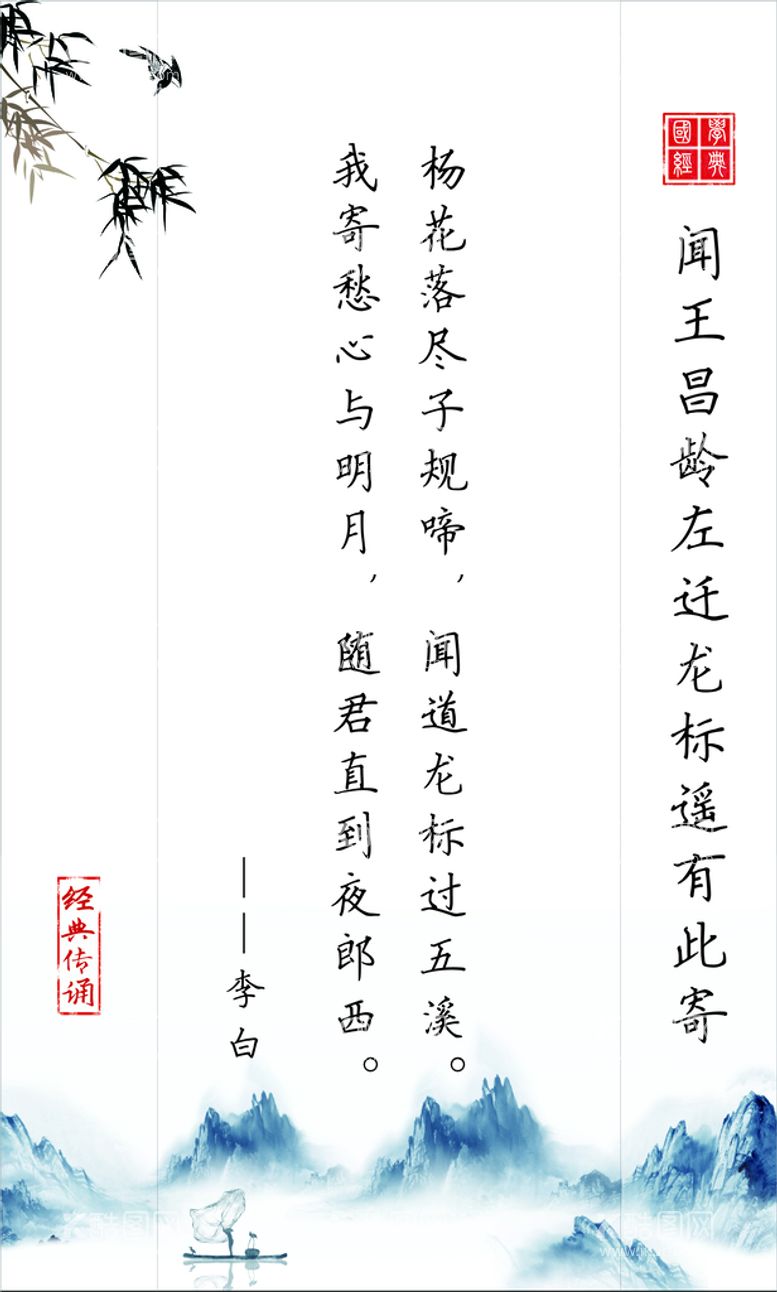 國學
經典
闻王昌龄左迁龙标遥有此寄
杨花落尽子规啼，闻道龙标过五溪。
我寄愁心与明月，随君直到夜郎西。
——李白
经典传诵